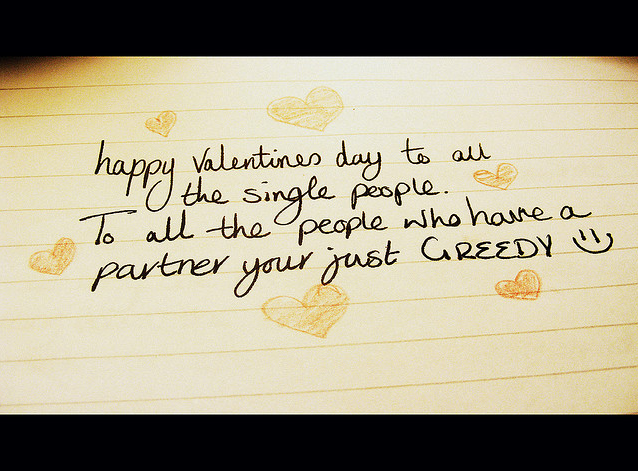 happy valentines day to all
the single people.
To all the people who have a
partner your just GREEDY